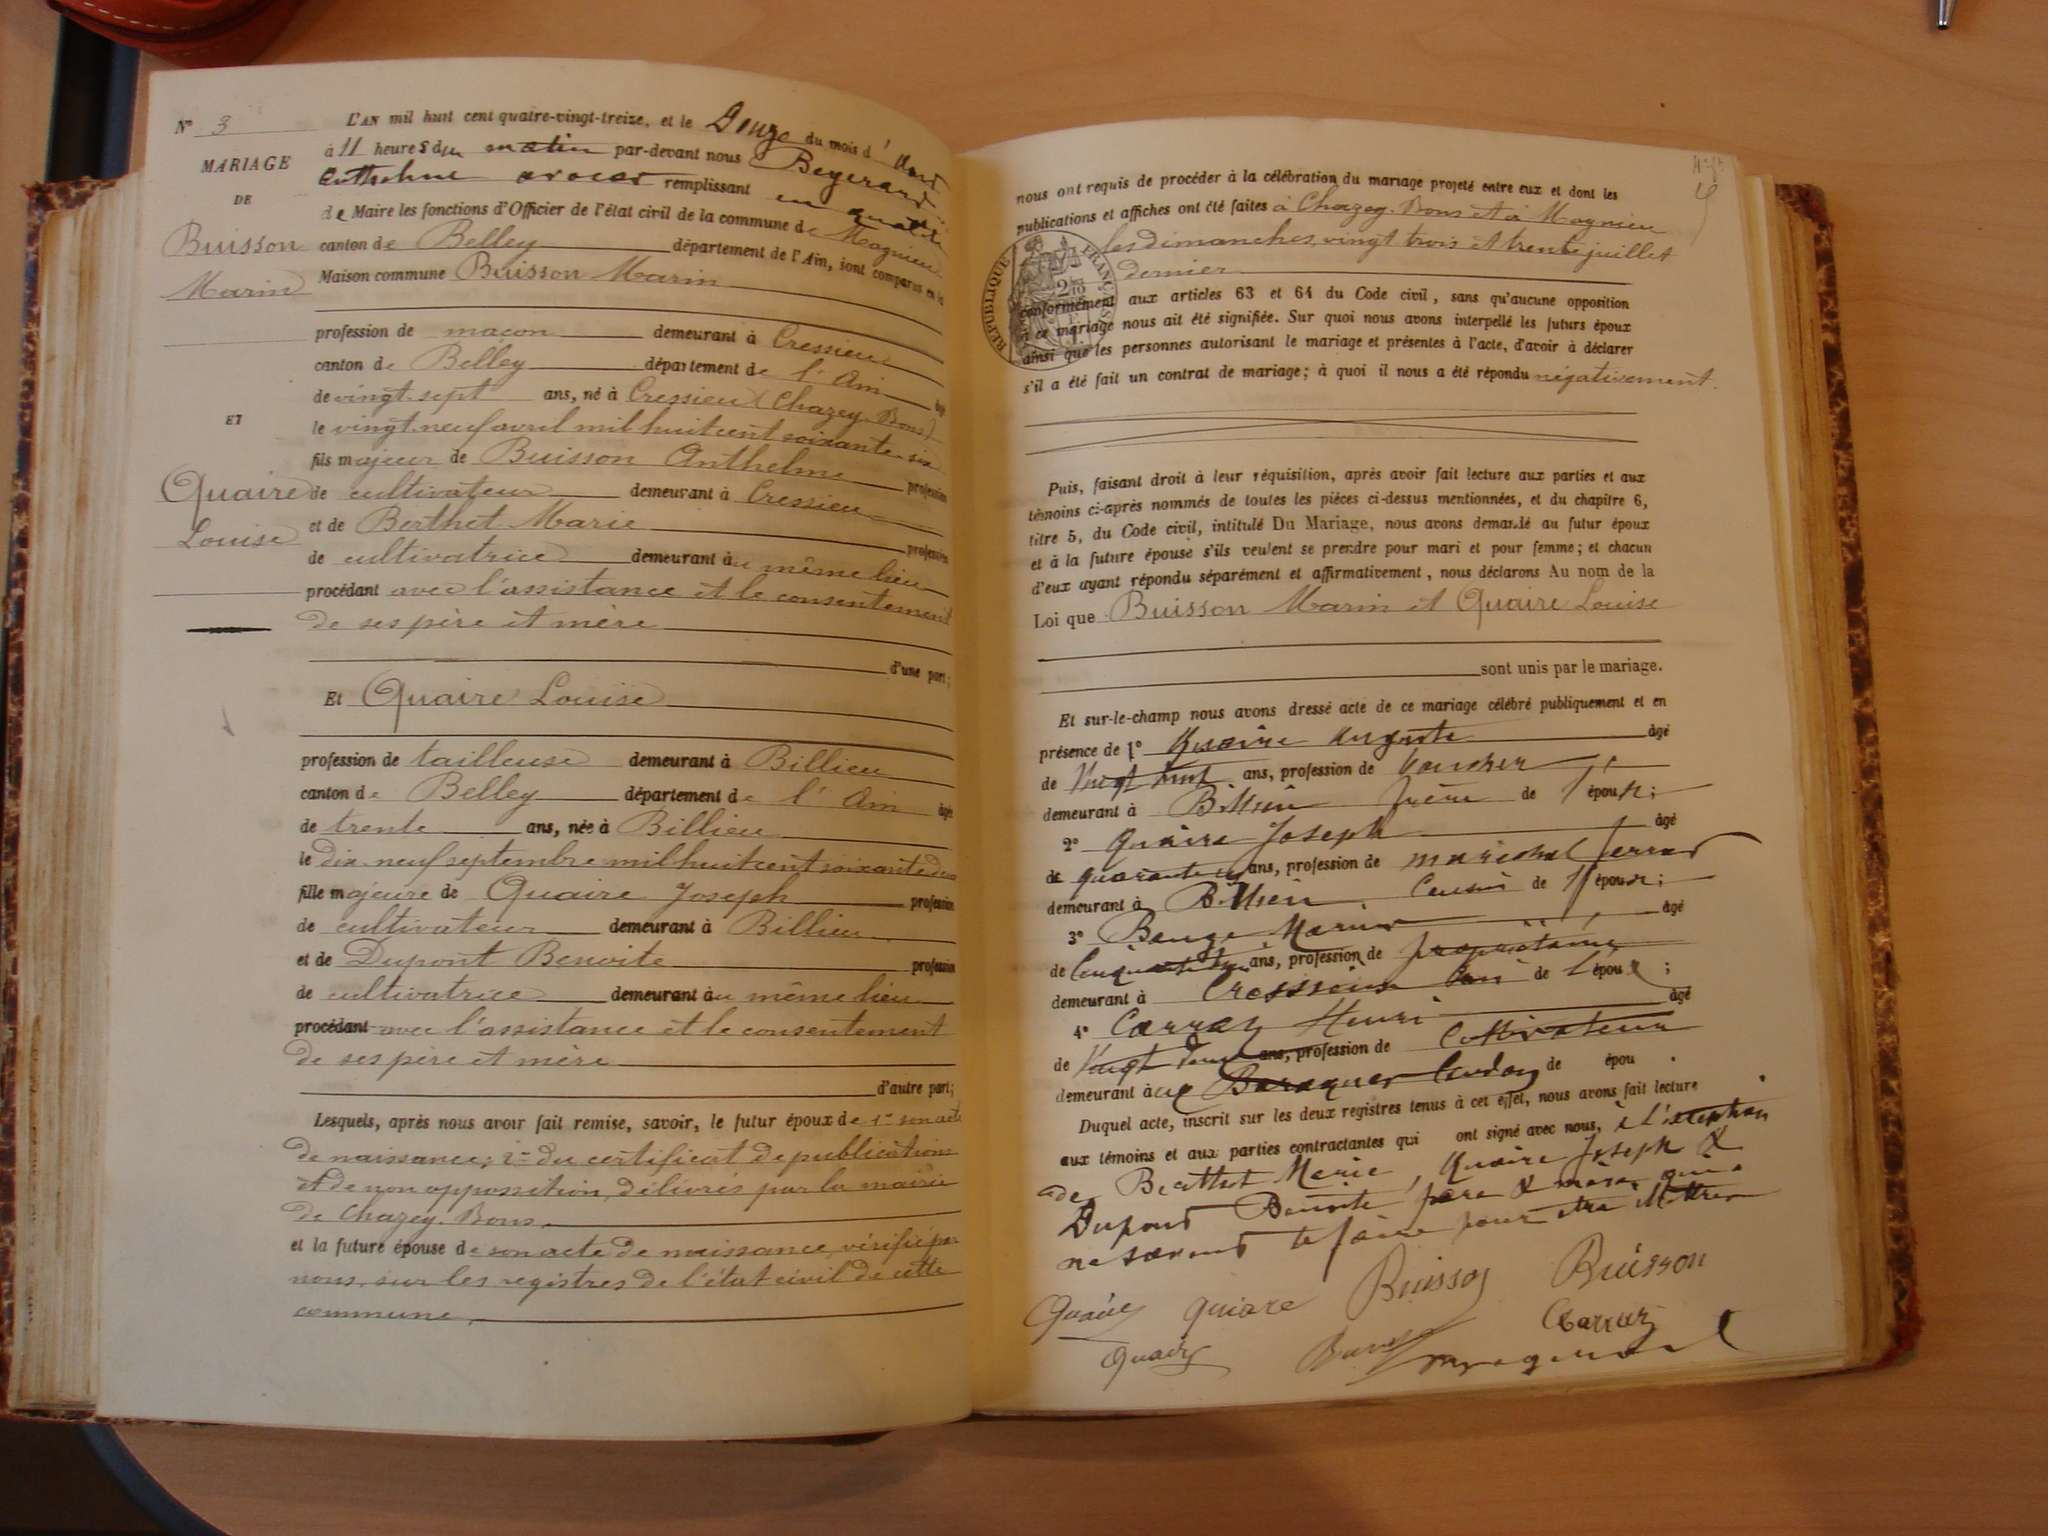 Nº 3
MARIAGE
DE
Buisson
Marin
ET
Quaire
Louise
L'AN mil huit cent quatre-vingt-treize, et le Douze du mois d'Août
à 11 heures du matin par-devant nous
Anthelme avocat remplissant en qualité
de Maire les fonctions d'Officier de l'état civil de la commune de Magnieu
canton de Belley département de l'Ain, sont comparus en la
Maison commune Buisson Marin
profession de maçon demeurant à Cressieu
canton de Belley département de l'Ain âgé
de vingt-sept ans, né à Cressieu (Chazey-Bons)
le vingt-neuf avril mil huit cent soixante-six
fils majeur de Buisson Anthelme profession
de cultivateur demeurant à Cressieu
et de Berthet Marie profession
de cultivatrice demeurant au même lieu
procédant avec l'assistance et le consentement
de ses père et mère
d'une part;
Et Quaire Louise
profession de tailleuse demeurant à Billieu
canton de Belley département de l'Ain âgée
de trente ans, née à Billieu
le dix-neuf septembre mil huit cent soixante deux
fille majeure de Quaire Joseph profession
de cultivateur demeurant à Billieu
et de Dupont Benoite profession
de cultivatrice demeurant au même lieu
procédant avec l'assistance et le consentement
de ses père et mère
d'autre part;
Lesquels, après nous avoir fait remise, savoir, le futur époux de 1º son acte
de naissance; 2º du certificat de publications
et de non opposition, délivrés par la mairie
de Chazey-Bons
et la future épouse de son acte de naissance, vérifié par
nous, sur les registres de l'état civil de cette
commune.
nous ont requis de procéder à la célébration du mariage projeté entre eux et dont les
publications et affiches ont été faites à Chazey-Bons et à Magnieu
les dimanches vingt trois et trente juillet
dernier
RÉPUBLIQUE FRANÇAISE
conformément aux articles 63 et 64 du Code civil, sans qu'aucune opposition
à ce mariage nous ait été signifiée. Sur quoi nous avons interpellé les futurs époux
ainsi que les personnes autorisant le mariage et présentes à l'acte, d'avoir à déclarer
s'il a été fait un contrat de mariage; à quoi il nous a été répondu négativement.
Puis, faisant droit à leur réquisition, après avoir fait lecture aux parties et aux
témoins ci-après nommés de toutes les pièces ci-dessus mentionnées, et du chapitre 6,
titre 5, du Code civil, intitulé Du Mariage, nous avons demandé au futur époux
et à la future épouse s'ils veulent se prendre pour mari et pour femme; et chacun
d'eux ayant répondu séparément et affirmativement, nous déclarons Au nom de la
Loi que Buisson Marin et Quaire Louise
sont unis par le mariage.
Et sur-le-champ nous avons dressé acte de ce mariage célébré publiquement et en
présence de 1º Quaire Auguste âgé
de Vingt huit ans, profession de
demeurant à Billieu frère de l'épouse;
2º Quaire Joseph âgé
de quarante ans, profession de maréchal ferrant
demeurant à Billieu, Cousin de l'épouse;
3º Marin âgé
de ans, profession de propriétaire
demeurant à Cressieu ami de l'époux;
4º Carraz Henri âgé
de Vingt deux ans, profession de Cultivateur
demeurant aux Baraques de épou .
Duquel acte, inscrit sur les deux registres tenus à cet effet, nous avons fait lecture
aux témoins et aux parties contractantes qui ont signé avec nous, à l'exception
de Berthet Marie, Quaire Joseph &
Dupont Benoite père & mère, qui
ne savent le faire pour être illettrés
Quaire Quaire Buisson Buisson
Quaire Carraz